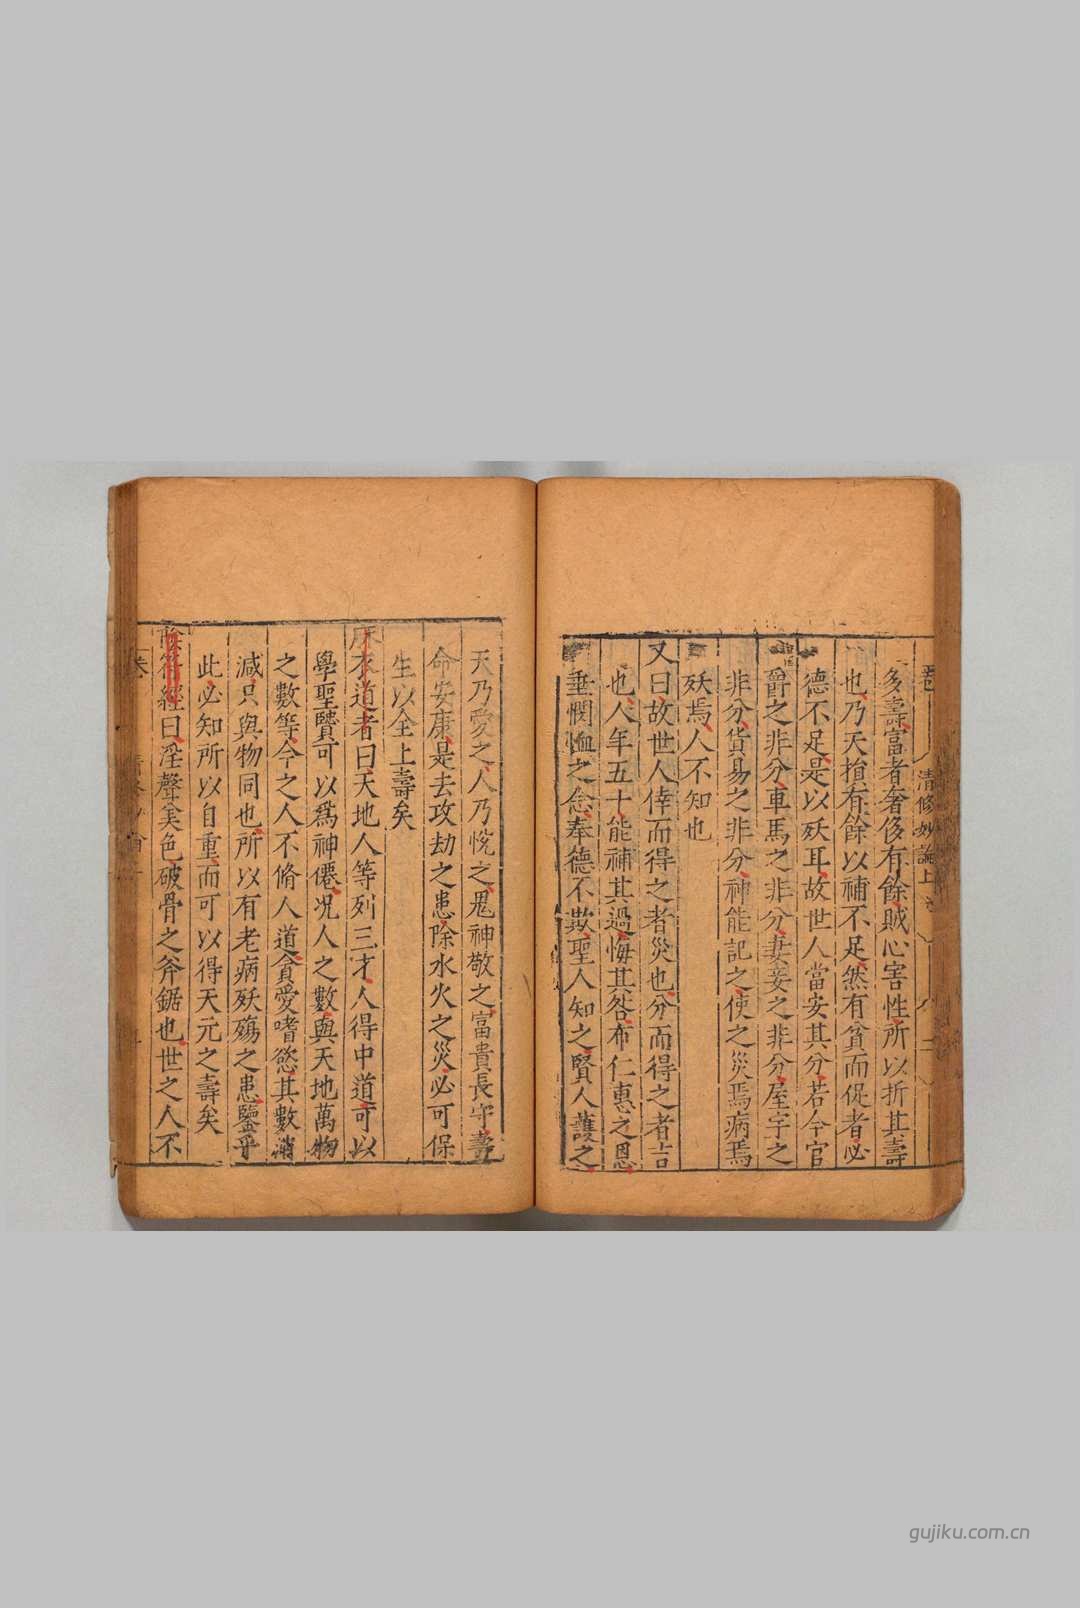 卷一 清修妙論上
多壽富者奢侈有餘賊心害性所以折其壽
也乃天損有餘以補不足然有貧而促者必
德不足是以殀耳故世人當安其分若今官
爵之非分車馬之非分妻妾之非分屋宇之
非分貨易之非分神能記之使之災焉病焉
殀焉人不知也
又曰故世人倖而得之者災也分而得之者吉
也人年五十能補其過悔其咎布仁惠之恩
垂憫恤之念奉德不欺聖人知之賢人護之
天乃愛之人乃悅之鬼神敬之富貴長守壽
命安康是去攻劫之患除水火之災必可保
生以全上壽矣
衣道者曰天地人等列三才人得中道可以
學聖賢可以爲神僊况人之數與天地萬物
之數等今之人不脩人道貪愛嗜慾其數消
減只與物同也所以有老病殀殤之患鑒乎
此必知所以自重而可以得天元之壽矣
符經曰淫聲美色破骨之斧鋸也世之人不
gujiku.com.cn